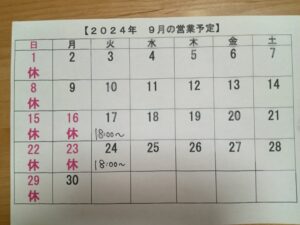 【2024年 9月の営業予定】
日 月 火 水 木 金 土
1 2 3 4 5 6 7
休
8 9 10 11 12 13 14
休
15 16 17 18 19 20 21
休 休 18:00〜
22 23 24 25 26 27 28
休 休 18:00〜
29 30
休